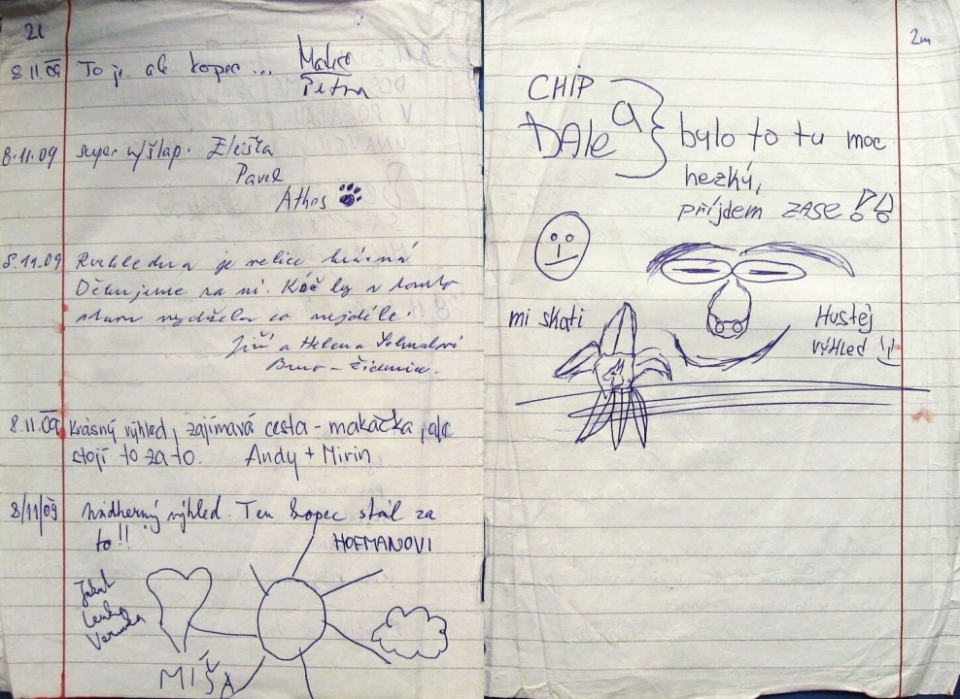 21
8.11.09 To je ale kopec...
Petra
8.11.09 super výšlap. Eliška
Pavel
Athos
8.11.09 Rozhledna je velice krásná
Děkujeme za ni. Kéž by v tomto
stavu vydržela co nejdéle.
Jiří a Helena
Brno - Židenice.
8.11.09 krásný výhled, zajímavá cesta - makačka, ale
stojí to za to. Andy + Mirin
8/11/09 Nádherný výhled. Ten kopec stál za
to!!
HOFMANOVI
Jakub
Lenka
Verunka
MIŠA
2m
CHIP
a
DALE
bylo to tu moc
hezký,
příjdem ZASE !!
mi skati
Hustej
výhled